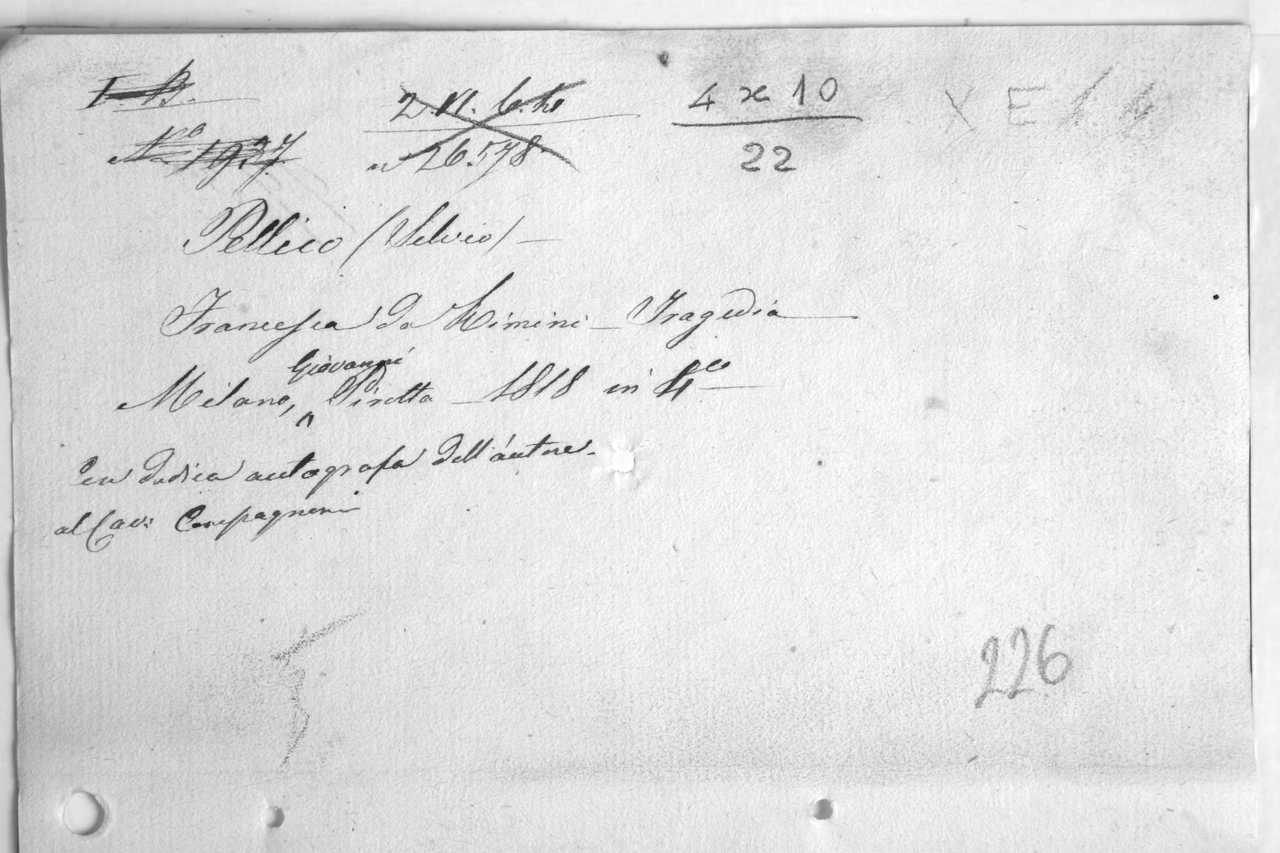 I B.
2. VI. 6.
4 x 10
X E
No 1937
n 26578
22
Pellico (Silvio) —
Francesca da Rimini — Tragedia
Giovanni
Milano, Pirotta — 1818 in 4to
Con dedica autografa dell'autore
al Cav: Compagnoni
226